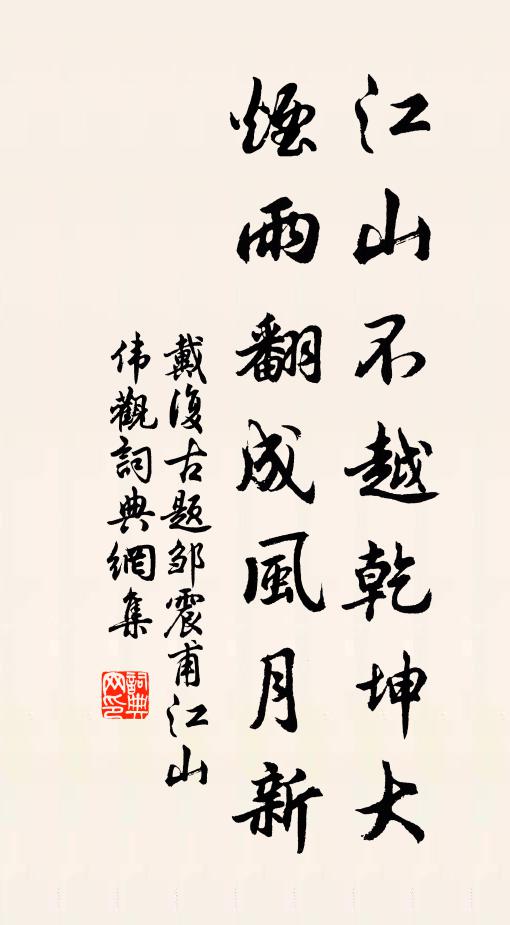 江山不越乾坤大
煙雨翻成風月新
戴復古题邹震甫江山
伟觀詞典網集
詞典网印